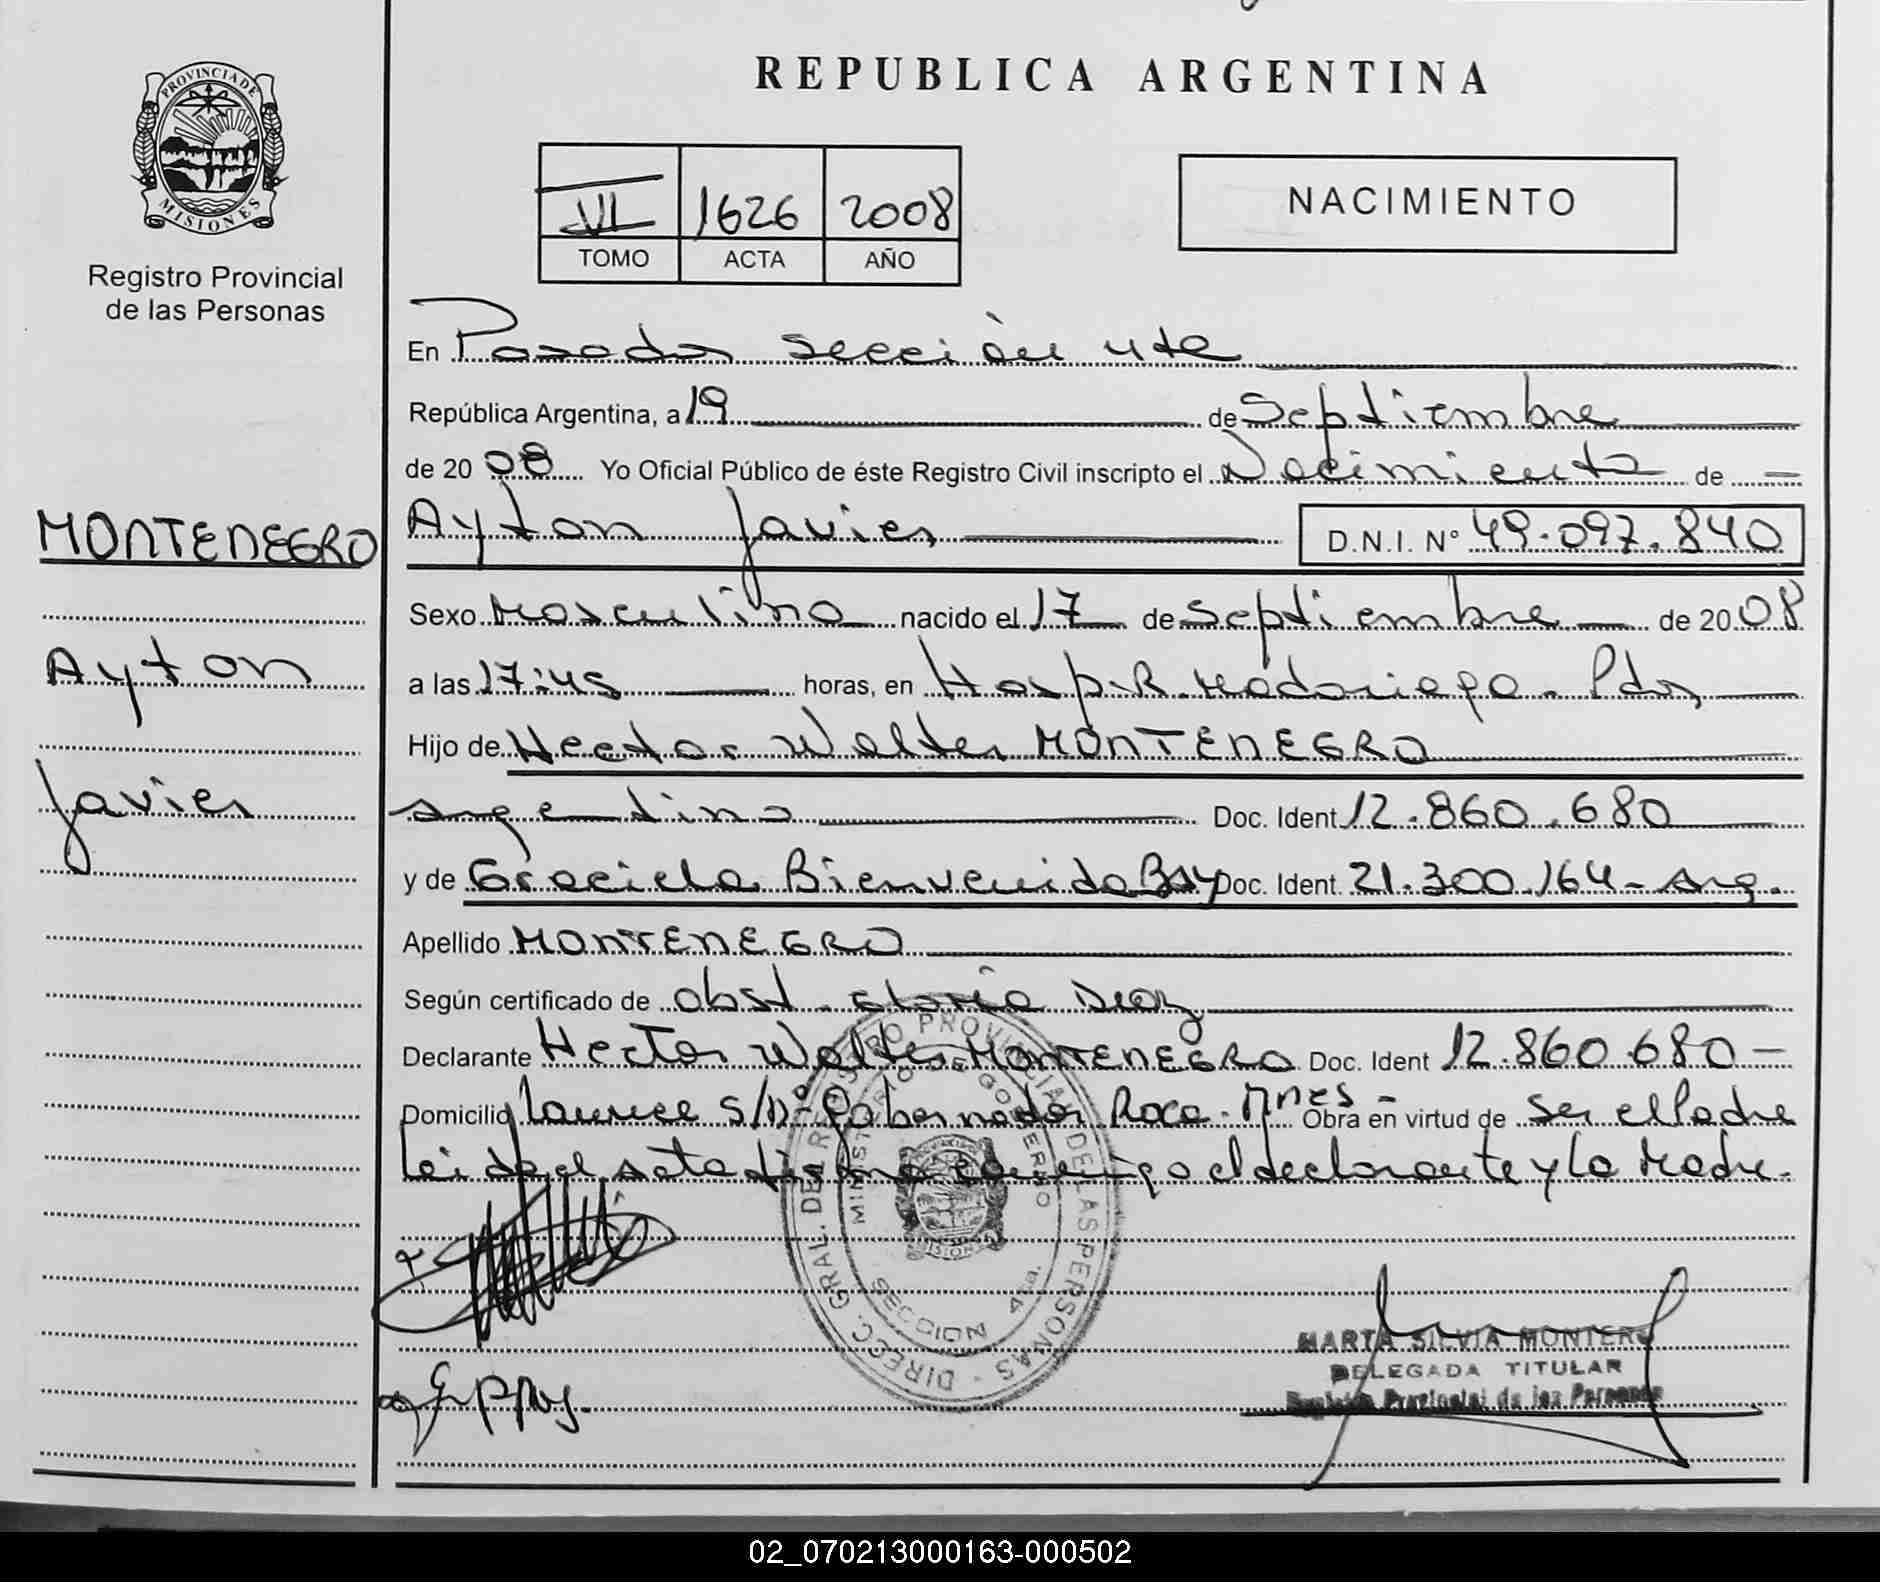 REPUBLICA ARGENTINA
PROVINCIA DE
MISIONES
Registro Provincial
de las Personas
VI 1626 2008
TOMO ACTA AÑO
NACIMIENTO
En Posadas sección 4ta
República Argentina, a 19 de Septiembre
de 20 08 Yo Oficial Público de éste Registro Civil inscripto el Nacimiento de
MONTENEGRO
Ayton
Javier
Ayton Javier D.N.I. N° 49.097.840
Sexo Masculino nacido el 17 de Septiembre de 20 08
a las 17:45 horas, en Hosp. R. Madariaga. Pdas
Hijo de Hector Walter MONTENEGRO
Argentino Doc. Ident 12.860.680
y de Graciela Bienvenida Bay Doc. Ident. 21.300.164 - Arg.
Apellido MONTENEGRO
Según certificado de obst. Gloria Diaz
Declarante Hector Walter MONTENEGRO Doc. Ident 12.860.680 -
Domicilio S/Nº Gobernador Roca. Mnes - Obra en virtud de ser el Padre
Leida el acta firma conmigo el declarante y la Madre.
DIRECC. GRAL. DEL REGISTRO PROVINCIAL DE LAS PERSONAS
MINISTERIO DE GOBIERNO
MISIONES
SECCION 4ta.
MARTA SILVIA MONTERO
DELEGADA TITULAR
Registro Provincial de las Personas
02_070213000163-000502